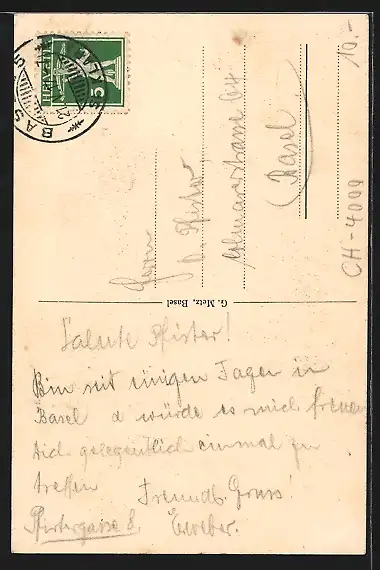 HELVETIA
5
BASEL
10.-
Herrn
Pfister
Colmarerstrasse 64
Basel
CH-4000
G. Metz, Basel
Salute Pfister!
Bin seit einigen Tagen in
Basel & würde es mich freuen
Dich gelegentlich einmal zu
treffen
Freundl. Gruss!
Pfirtergasse 8,
EWeber.